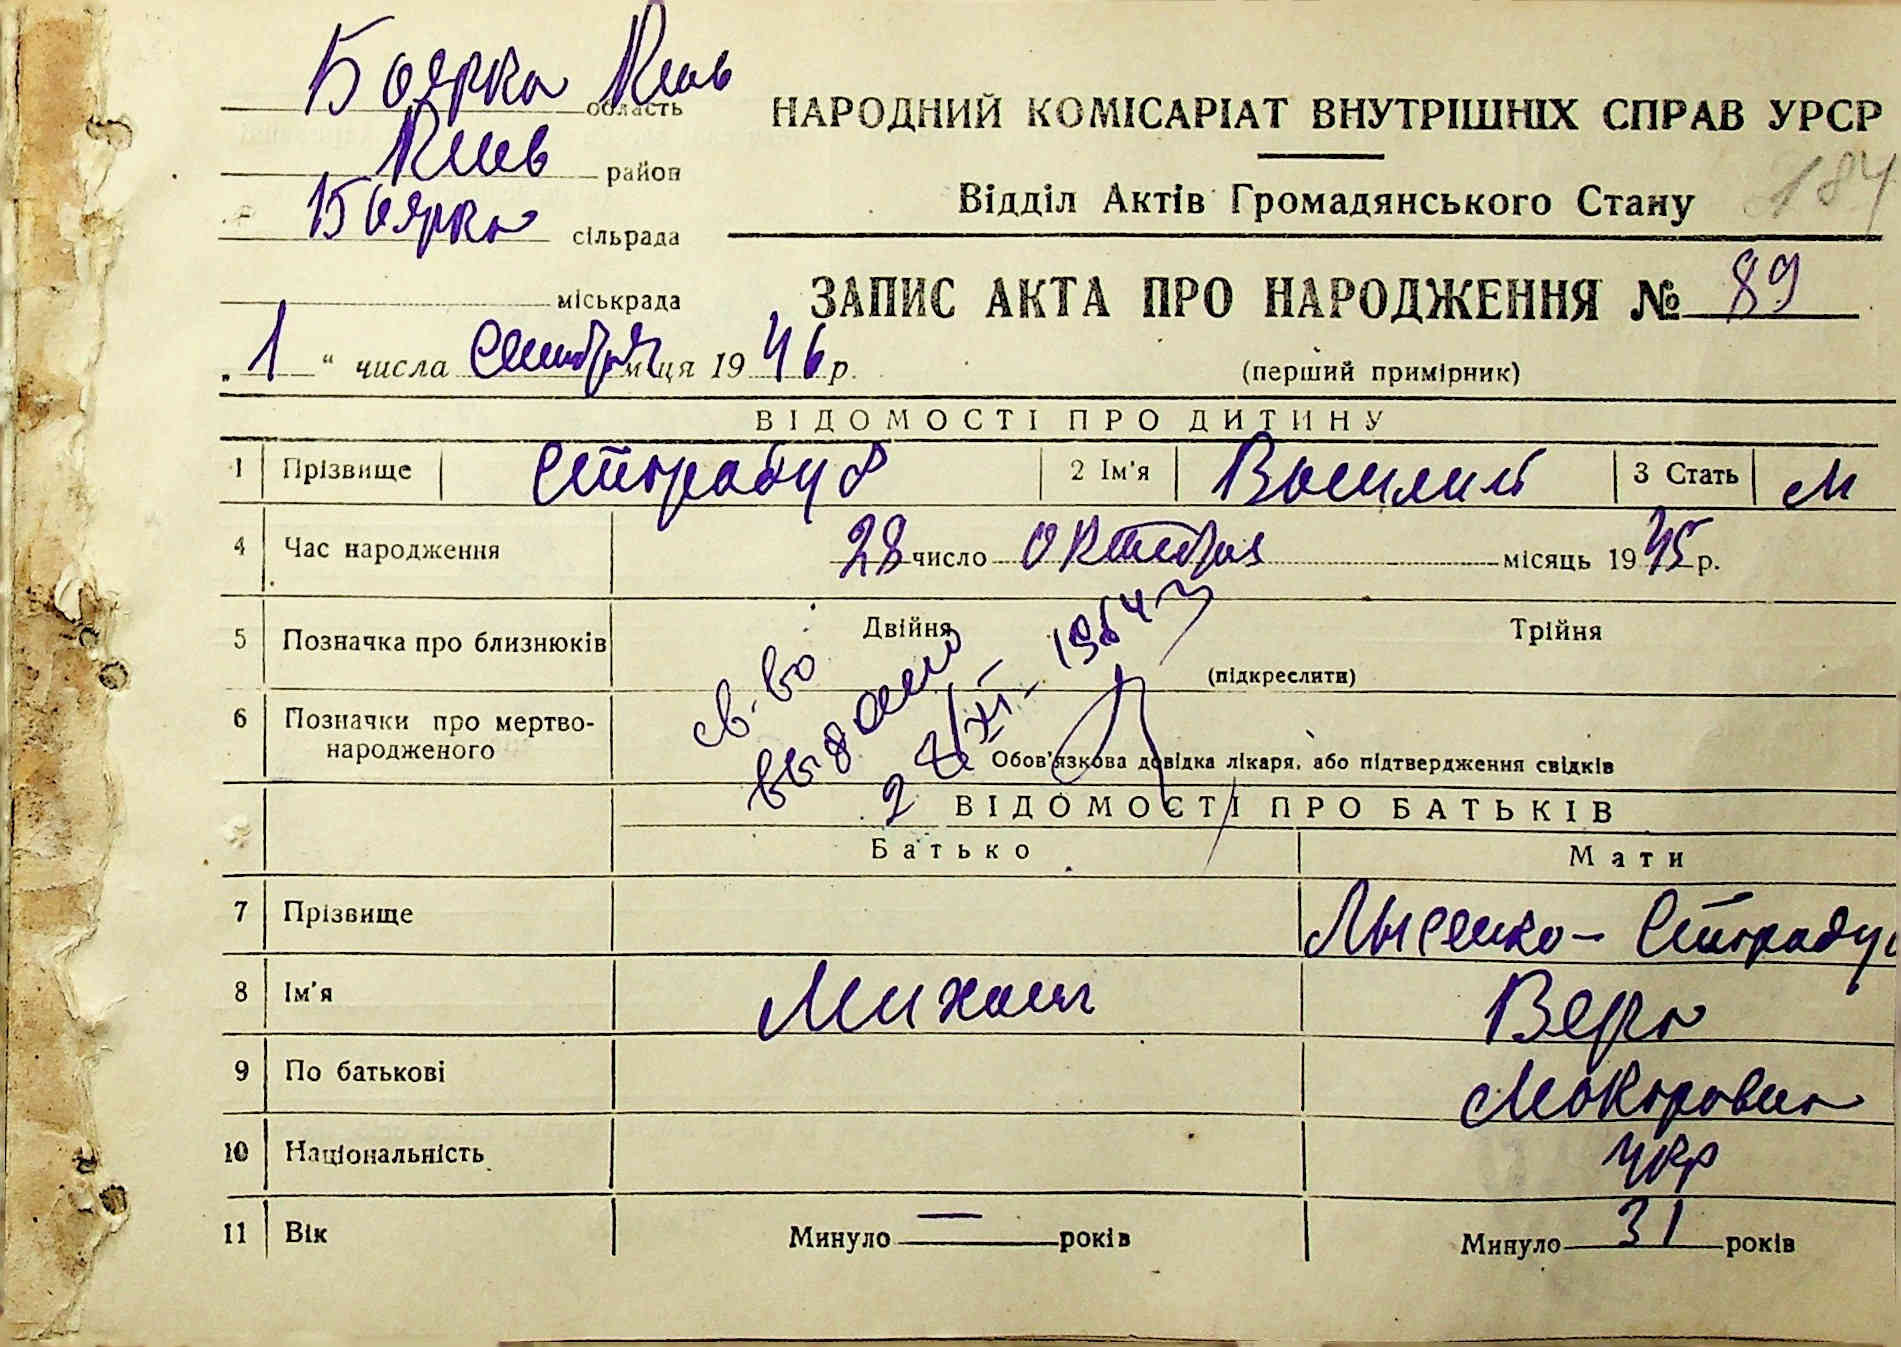 Боярка Киев область
Киев район
Боярка сільрада
міськрада
НАРОДНИЙ КОМІСАРІАТ ВНУТРІШНІХ СПРАВ УРСР
Відділ Актів Громадянського Стану 184
ЗАПИС АКТА ПРО НАРОДЖЕННЯ № 89
„1“ числа Сентября м-ця 1946 р.
(перший примірник)
ВІДОМОСТІ ПРО ДИТИНУ
1 Прізвище 2 Ім'я Василий 3 Стать М
4 Час народження 28 число октября місяць 1945 р.
5 Позначка про близнюків Двійня Трійня
(підкреслити)
св-во
выдано
28/XI-1964
6 Позначки про мертво-
народженого
Обов'язкова довідка лікаря, або підтвердження свідків
ВІДОМОСТІ ПРО БАТЬКІВ
Батько Мати
7 Прізвище Лысенко-
8 Ім'я Михаил Вера
9 По батькові Макаровна
10 Національність укр
11 Вік Минуло — років Минуло 31 років